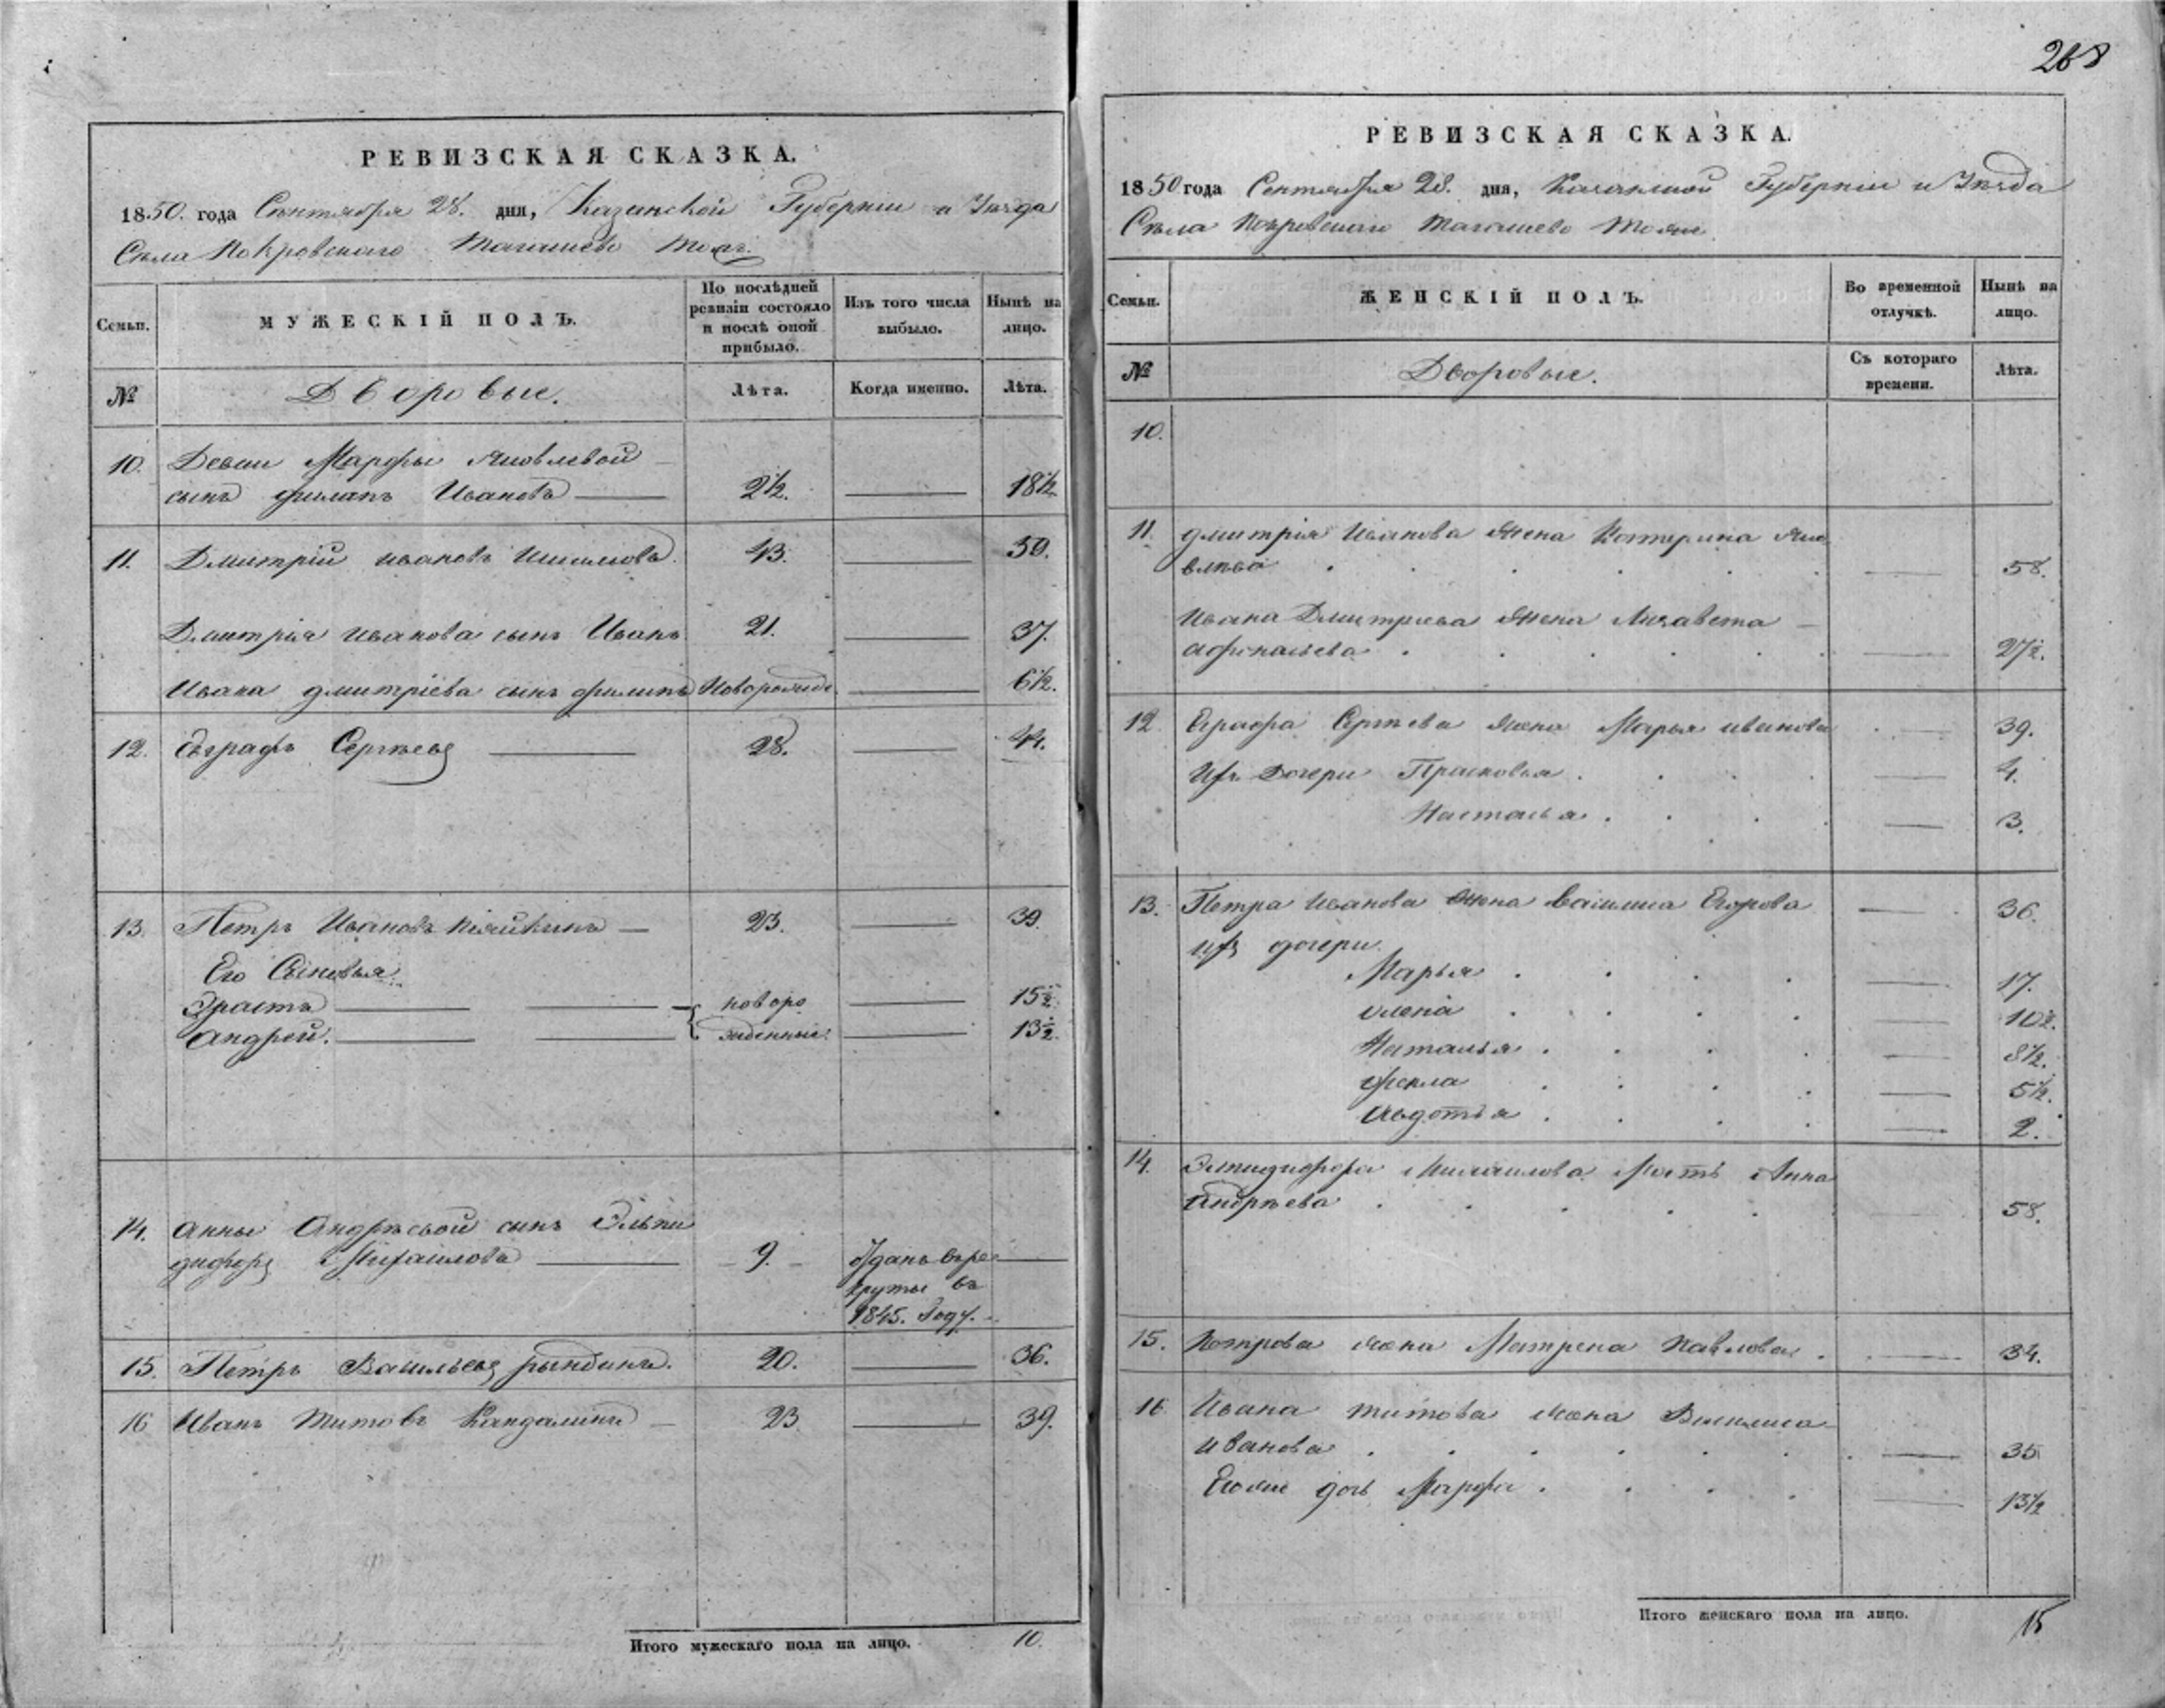 268
РЕВИЗСКАЯ СКАЗКА.
1850. года Сентября 28. дня, Казанской Губернии и Уѣзда
Села Покровскаго Тагашево тожъ
Семьи.
МУЖЕСКІЙ ПОЛЪ.
По послѣдней ревизіи состояло и послѣ оной прибыло.
Изъ того числа выбыло.
Нынѣ на лицо.
№
Дворовые.
Лѣта.
Когда именно.
Лѣта.
10. Девки Марфы Яковлевой
сынъ Филипъ Ивановъ 2½. 18½
11. Дмитрій Ивановъ 43. 59.
Дмитрія Иванова сынъ Иванъ 21. 37.
Ивана Дмитріева сынъ Филипъ Новорожде 6½.
12. Евграфъ Сергѣевъ 28. 44.
13. Петръ Ивановъ 23. 39.
Его Сыновья:
Эрастъ новоро 15½
Андрей. жденные. 13½.
14. Анны Андрѣевой сынъ Эльпи
дифоръ Михайловъ 9. Отданъ въ ре
круты въ
1845. Году.
15. Петръ Васильевъ Рындинъ. 20. 36.
16 Иванъ Титовъ Кандалинъ 23 39.
Итого мужескаго пола на лицо. 10.
РЕВИЗСКАЯ СКАЗКА.
1850 года Сентября 28. дня, Казанской Губерніи и Уѣзда
Села Покровскаго Тагашево тожъ
Семьи.
ЖЕНСКІЙ ПОЛЪ.
Во временной отлучкѣ.
Нынѣ на лицо.
№
Дворовые.
Съ котораго времени.
Лѣта.
10.
11. Дмитрія Иванова жена Катерина Яко
влева 58.
Ивана Дмитриева жена Лизавета
Афонасьева 27½.
12. Еграфа Сергѣева жена Марья Иванова 39.
Ихъ Дочери Прасковья 4.
Настасья 3.
13. Петра Иванова жена Василиса Егорова 36.
ихъ дочери
Марья 17.
Олена 10½.
Наталья 8½.
Фекла 5½.
Авдотья 2.
14. Элпидифора Михаилова Мать Анна
Андрѣева 58.
15. Петрова жена Матрена Павлова 34.
16 Ивана Титова жена Василиса
Иванова 35
Егоже дочь Марфа 13½
Итого женскаго пола на лицо. 15